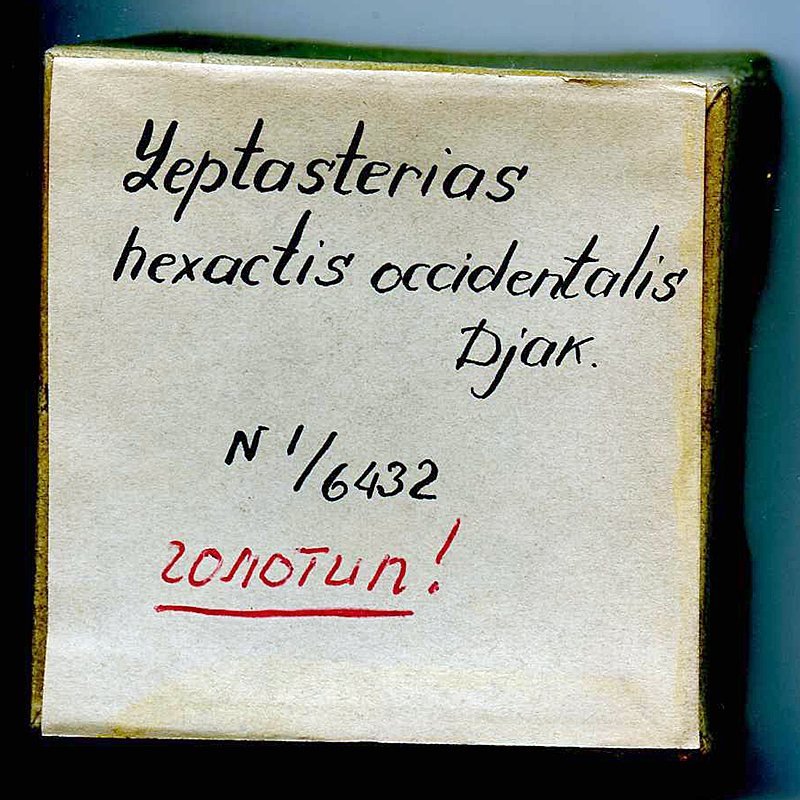 Leptasterias
hexactis occidentalis
Djak.
N 1/6432
голотип!